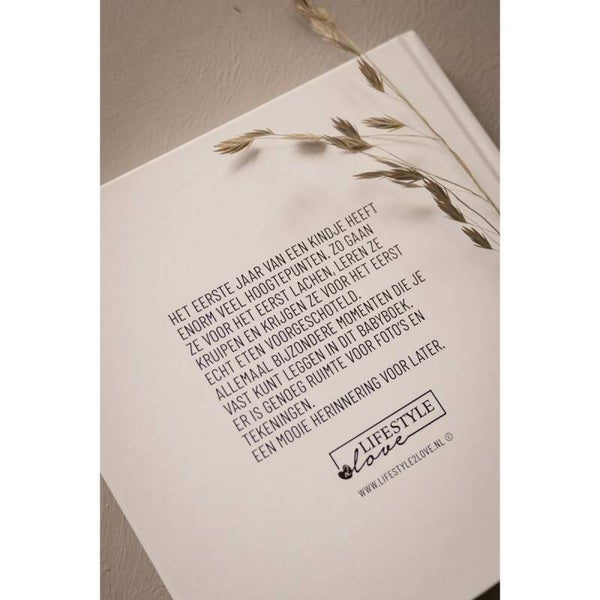 HET EERSTE JAAR VAN EEN KINDJE HEEFT
ENORM VEEL HOOGTEPUNTEN. ZO GAAN
ZE VOOR HET EERST LACHEN, LEREN ZE
KRUIPEN EN KRIJGEN ZE VOOR HET EERST
ECHT ETEN VOORGESCHOTELD.
ALLEMAAL BIJZONDERE MOMENTEN DIE JE
VAST KUNT LEGGEN IN DIT BABYBOEK.
ER IS GENOEG RUIMTE VOOR FOTO'S EN
TEKENINGEN.
EEN MOOIE HERINNERING VOOR LATER.
LIFESTYLE
love
WWW.LIFESTYLE2LOVE.NL ©